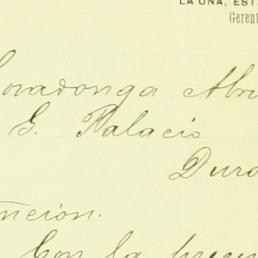 LA UNA, EST
Gerent
Covadonga Abri
G. Palacio
Dura
nción.
Con la presen